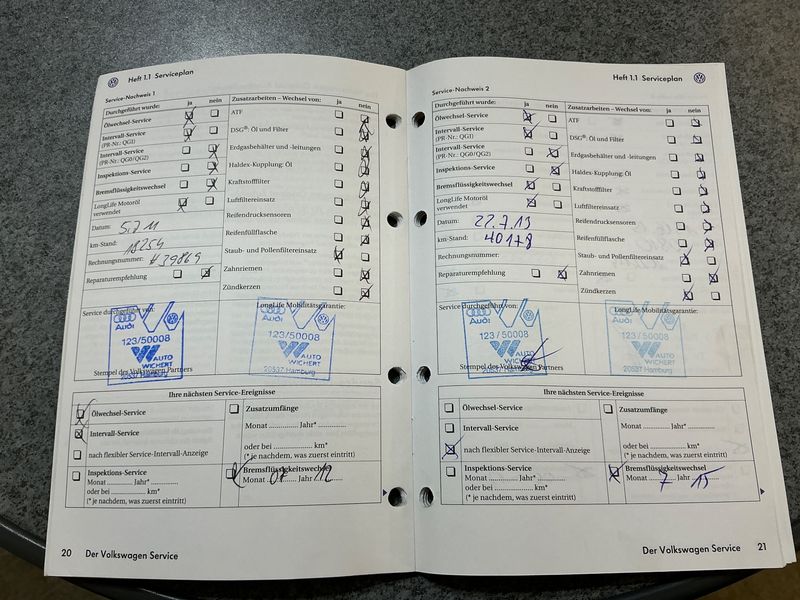 Heft 1.1 Serviceplan
Service-Nachweis 1
Durchgeführt wurde: ja nein
Ölwechsel-Service
Intervall-Service
(PR-Nr.: QG1)
Intervall-Service
(PR-Nr.: QG0/QG2)
Inspektions-Service
Bremsflüssigkeitswechsel
LongLife Motoröl
verwendet
Datum: 5.7.11
km-Stand: 18254
Rechnungsnummer: 439869
Reparaturempfehlung
Zusatzarbeiten – Wechsel von: ja nein
ATF
DSG®: Öl und Filter
Erdgasbehälter und -leitungen
Haldex-Kupplung: Öl
Kraftstofffilter
Luftfiltereinsatz
Reifendrucksensoren
Reifenfüllflasche
Staub- und Pollenfiltereinsatz
Zahnriemen
Zündkerzen
Service durchgeführt von:
Audi
123/50008
AUTO
WICHERT
20537 Hamburg
Stempel des Volkswagen Partners
LongLife Mobilitätsgarantie:
Audi
123/50008
AUTO
WICHERT
20537 Hamburg
Ihre nächsten Service-Ereignisse
Ölwechsel-Service
Intervall-Service
nach flexibler Service-Intervall-Anzeige
Inspektions-Service
Monat .............. Jahr* ..............
oder bei .................. km*
(* je nachdem, was zuerst eintritt)
Zusatzumfänge
Monat .............. Jahr* ..............
oder bei .................. km*
(* je nachdem, was zuerst eintritt)
Bremsflüssigkeitswechsel
Monat 07 Jahr 12
20 Der Volkswagen Service
Heft 1.1 Serviceplan
Service-Nachweis 2
Durchgeführt wurde: ja nein
Ölwechsel-Service
Intervall-Service
(PR-Nr.: QG1)
Intervall-Service
(PR-Nr.: QG0/QG2)
Inspektions-Service
Bremsflüssigkeitswechsel
LongLife Motoröl
verwendet
Datum: 22.7.13
km-Stand: 40178
Rechnungsnummer:
Reparaturempfehlung
Zusatzarbeiten – Wechsel von: ja nein
ATF
DSG®: Öl und Filter
Erdgasbehälter und -leitungen
Haldex-Kupplung: Öl
Kraftstofffilter
Luftfiltereinsatz
Reifendrucksensoren
Reifenfüllflasche
Staub- und Pollenfiltereinsatz
Zahnriemen
Zündkerzen
Service durchgeführt von:
Audi
123/50008
AUTO
WICHERT
20537 Hamburg
Stempel des Volkswagen Partners
LongLife Mobilitätsgarantie:
Audi
123/50008
AUTO
WICHERT
20537 Hamburg
Ihre nächsten Service-Ereignisse
Ölwechsel-Service
Intervall-Service
nach flexibler Service-Intervall-Anzeige
Inspektions-Service
Monat .............. Jahr* ..............
oder bei .................. km*
(* je nachdem, was zuerst eintritt)
Zusatzumfänge
Monat .............. Jahr* ..............
oder bei .................. km*
(* je nachdem, was zuerst eintritt)
Bremsflüssigkeitswechsel
Monat 7 Jahr 15
Der Volkswagen Service 21